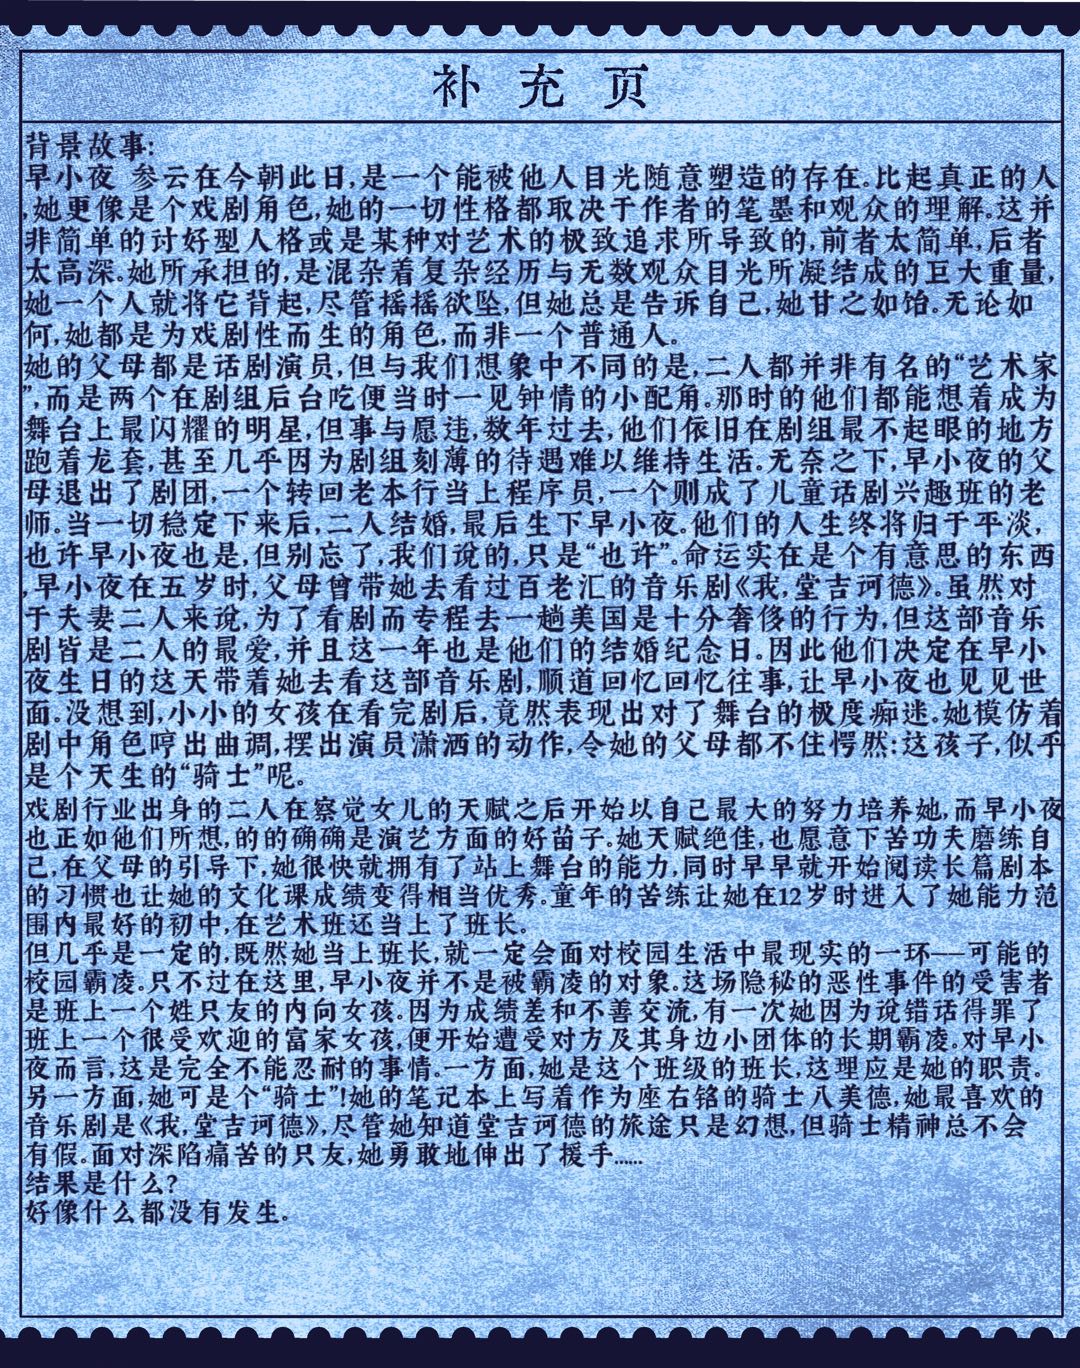 补充页
背景故事:
早小夜 参云在今朝此日,是一个能被他人目光随意塑造的存在。比起真正的人
,她更像是个戏剧角色,她的一切性格都取决于作者的笔墨和观众的理解。这并
非简单的讨好型人格或是某种对艺术的极致追求所导致的,前者太简单,后者
太高深。她所承担的,是混杂着复杂经历与无数观众目光所凝结成的巨大重量,
她一个人就将它背起,尽管摇摇欲坠,但她总是告诉自己,她甘之如饴。无论如
何,她都是为戏剧性而生的角色,而非一个普通人。
她的父母都是话剧演员,但与我们想象中不同的是,二人都并非有名的“艺术家
”,而是两个在剧组后台吃便当时一见钟情的小配角。那时的他们都能想着成为
舞台上最闪耀的明星,但事与愿违,数年过去,他们依旧在剧组最不起眼的地方
跑着龙套,甚至几乎因为剧组刻薄的待遇难以维持生活。无奈之下,早小夜的父
母退出了剧团,一个转回老本行当上程序员,一个则成了儿童话剧兴趣班的老
师。当一切稳定下来后,二人结婚,最后生下早小夜。他们的人生终将归于平淡,
也许早小夜也是,但别忘了,我们说的,只是“也许”。命运实在是个有意思的东西
,早小夜在五岁时,父母曾带她去看过百老汇的音乐剧《我,堂吉诃德》。虽然对
于夫妻二人来说,为了看剧而专程去一趟美国是十分奢侈的行为,但这部音乐
剧皆是二人的最爱,并且这一年也是他们的结婚纪念日。因此他们决定在早小
夜生日的这天带着她去看这部音乐剧,顺道回忆回忆往事,让早小夜也见见世
面。没想到,小小的女孩在看完剧后,竟然表现出对了舞台的极度痴迷。她模仿着
剧中角色哼出曲调,摆出演员潇洒的动作,令她的父母都不住愕然:这孩子,似乎
是个天生的“骑士”呢。
戏剧行业出身的二人在察觉女儿的天赋之后开始以自己最大的努力培养她,而早小夜
也正如他们所想,的的确确是演艺方面的好苗子。她天赋绝佳,也愿意下苦功夫磨练自
己,在父母的引导下,她很快就拥有了站上舞台的能力,同时早早就开始阅读长篇剧本
的习惯也让她的文化课成绩变得相当优秀。童年的苦练让她在12岁时进入了她能力范
围内最好的初中,在艺术班还当上了班长。
但几乎是一定的,既然她当上班长,就一定会面对校园生活中最现实的一环——可能的
校园霸凌。只不过在这里,早小夜并不是被霸凌的对象。这场隐秘的恶性事件的受害者
是班上一个姓只友的内向女孩。因为成绩差和不善交流,有一次她因为说错话得罪了
班上一个很受欢迎的富家女孩,便开始遭受对方及其身边小团体的长期霸凌。对早小
夜而言,这是完全不能忍耐的事情。一方面,她是这个班级的班长,这理应是她的职责。
另一方面,她可是个“骑士”!她的笔记本上写着作为座右铭的骑士八美德,她最喜欢的
音乐剧是《我,堂吉诃德》,尽管她知道堂吉诃德的旅途只是幻想,但骑士精神总不会
有假。面对深陷痛苦的只友,她勇敢地伸出了援手……
结果是什么?
好像什么都没有发生。